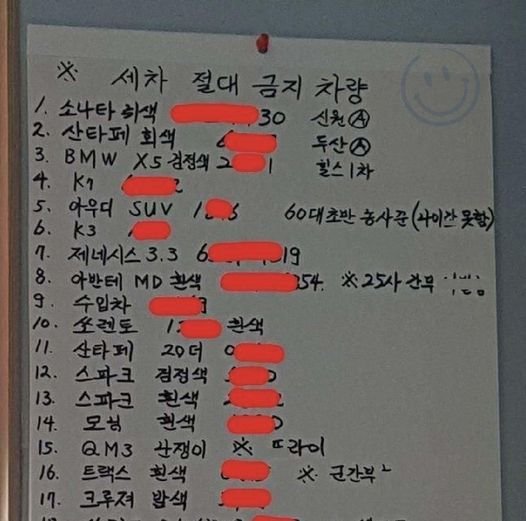 ※ 세차 절대 금지 차량
1. 소나타 회색 30 신원Ⓐ
2. 산타페 회색 두산Ⓐ
3. BMW X5 검정색 2 1 힐스1차
4. K7
5. 아우디 SUV 1 6 60대초반 농사꾼
6. K3
7. 제네시스 3.3 6 19
8. 아반테 MD 흰색 354. ※25사 간부
9. 수입차
10. 쏘렌토 1 흰색
11. 산타페 20더 0
12. 스파크 검정색
13. 스파크 흰색
14. 모닝 흰색
15. QM3 난쟁이 ※ 또라이
16. 트랙스 흰색 ※ 군간부
17. 크루져 밤색